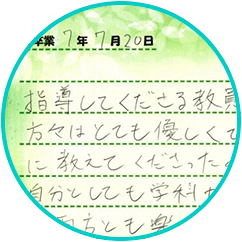 卒業7年7月20日
指導してくださる教員
方々はとても優しくて
に教えてくださった
自分としても学科
両方とも楽